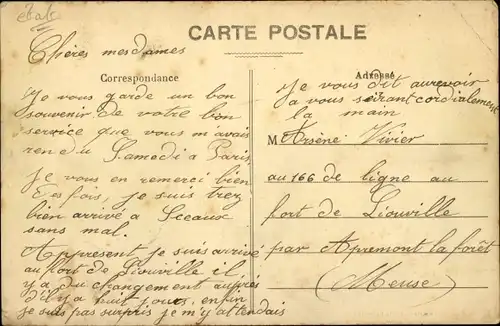 CARTE POSTALE
Chères mesdames
Correspondance
Je vous garde un bon
souvenir de votre bon
service que vous m'avais
rendu Samedi a Paris
je vous en remerci bien
fois, je suis trez
bien arrivé a Sceaux
sans mal.
Appresent je suis arrivé
au fort de Liouville il
y a du changement auprès
d'il y a huit jours, enfin
je suis pas surpris je m'y attendais
Adresse
je vous dit aurevoir
a vous serrant cordialement
la main
M Arsène Vivier
au 166 de ligne au
fort de Liouville
par Apremont la forêt
(Meuse)